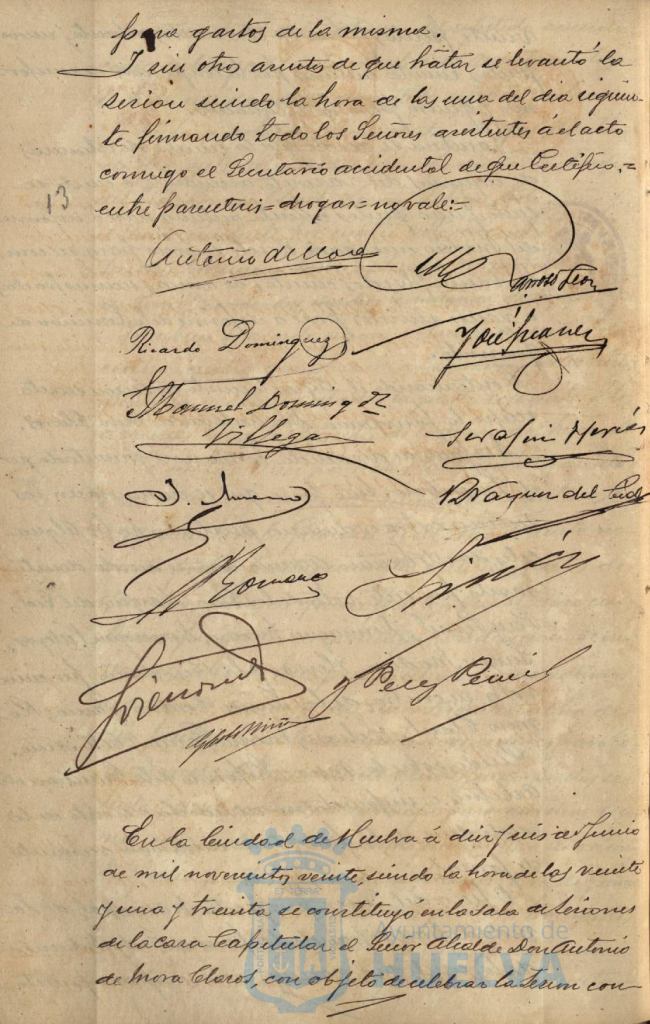 para gastos de la misma.
Y sin otros asuntos de que tratar se levantó la
sesion siendo la hora de las una del dia siguien-
te firmando todo los Señores asistentes á el acto
conmigo el Secretario accidental de que Certifico.=
entre parentesis=drogas=no vale:=
13
Antonio de Mora
Ricardo Dominguez
José Suarez
Manuel Doming.ez
Villegas
Serafin
J.
Vazquez del
Romero
y Perez
En la Ciudad de Huelva á diez y seis de Junio
de mil novecientos veinte, siendo la hora de las veinte
y una y treinta se constituyó en la sala de Sesiones
de la casa Capitular el Señor Alcalde Don Antonio
de Mora Claros, con objeto de celebrar la Sesion con-
Ayuntamiento de
HUELVA